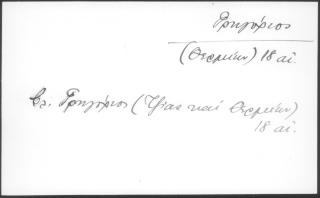 Γρηγόριος
(Θερμίων) 18 αἰ.
βλ. Γρηγόριος (Τζίας καί Θερμίων)
18 αἰ.